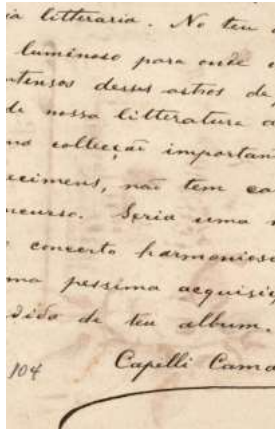 ia litteraria. No teu
luminoso para onde
ntensos desses astros de
de nossa litteratura
ma collecção importan
ecimens, não tem
ncurso. Seria uma
concerto harmonioso
ma pessima acquisiç
dido de teu album.
104 Capelli Cama